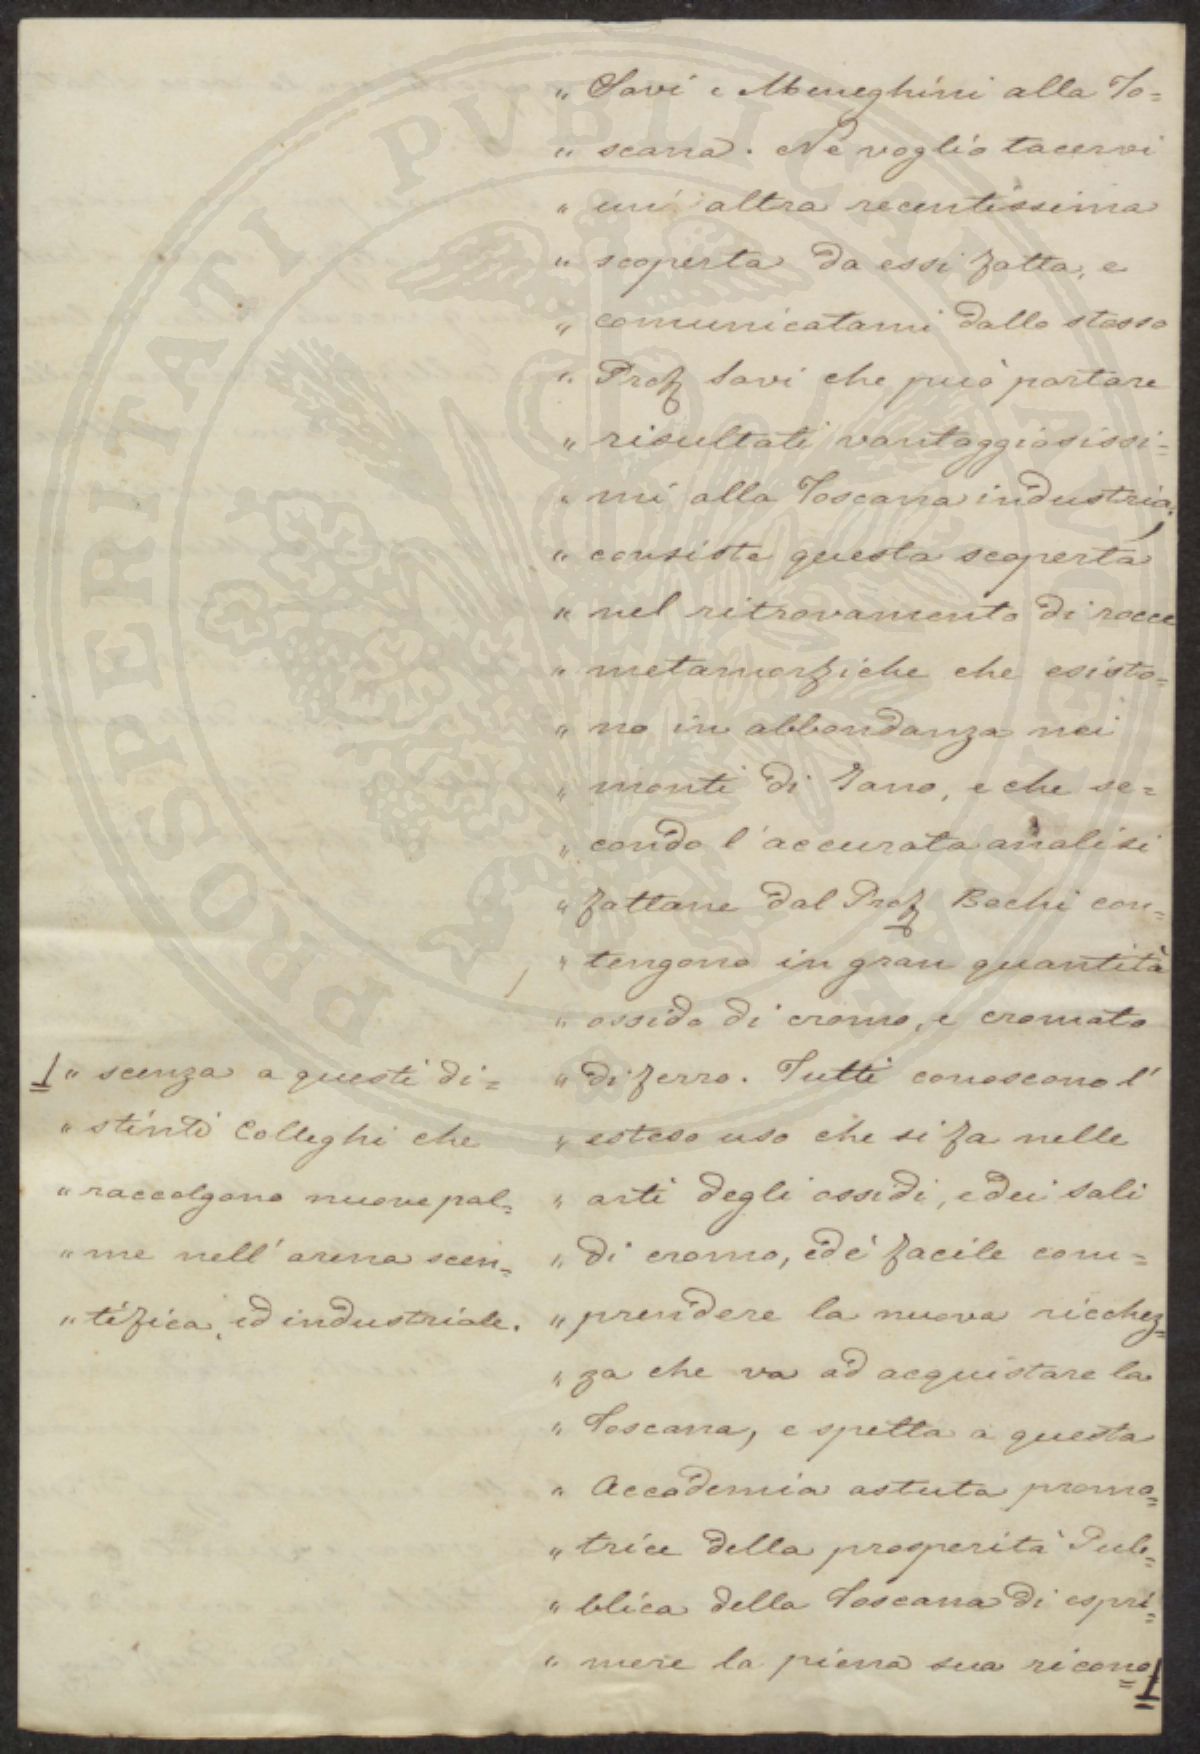 „ Savi e Meneghini alla To=
„ scana. Nè voglio tacervi
„ un' altra recentissima
„ scoperta da essi fatta, e
„ comunicatami dallo stesso
„ Prof Savi che può portare
„ risultati vantaggiosissi=
„ mi alla Toscana industria;
„ consiste questa scoperta
„ nel ritrovamento di rocce
„ metamorfiche che esisto=
„ no in abbondanza nei
„ monti di Iano, e che se=
„ condo l'accurata analisi
„ fattane dal Prof Bechi con=
„ tengono in gran quantità
„ ossido di cromo, e cromato
„ di ferro. Tutti conoscono l'
„ esteso uso che si fa nelle
„ arti degli ossidi, e dei sali
„ di cromo, ed è facile com=
„ prendere la nuova ricchez=
„ za che va ad acquistare la
„ Toscana, e spetta a questa
„ Accademia astuta promo=
„ trice della prosperità Pub=
„ blica della Toscana di espri=
„ mere la piena sua ricono=
„ scenza a questi di=
„ stinti Colleghi che
„ raccolgono nuove pal=
„ me nell' arena scen=
„ tifica, ed industriale.
PROSPERITATI PUBLICAE AUGENDAE